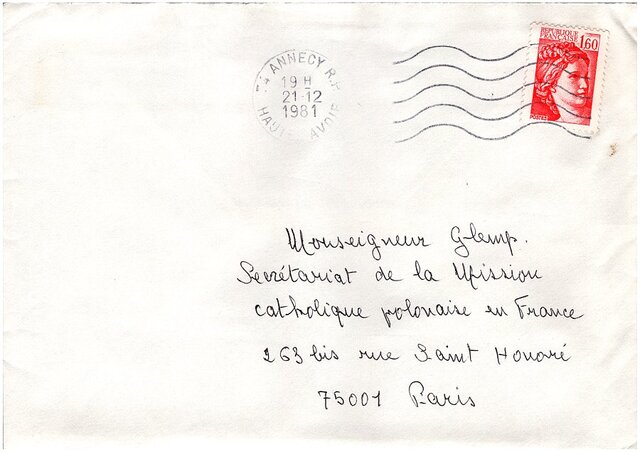 REPUBLIQUE
FRANÇAISE
1,60
POSTES
74 ANNECY R.P.
19 H
21-12
1981
HAUTE SAVOIE
Monseigneur Glemp.
Secrétariat de la Mission
catholique polonaise en France
263 bis rue Saint Honoré
75001 Paris